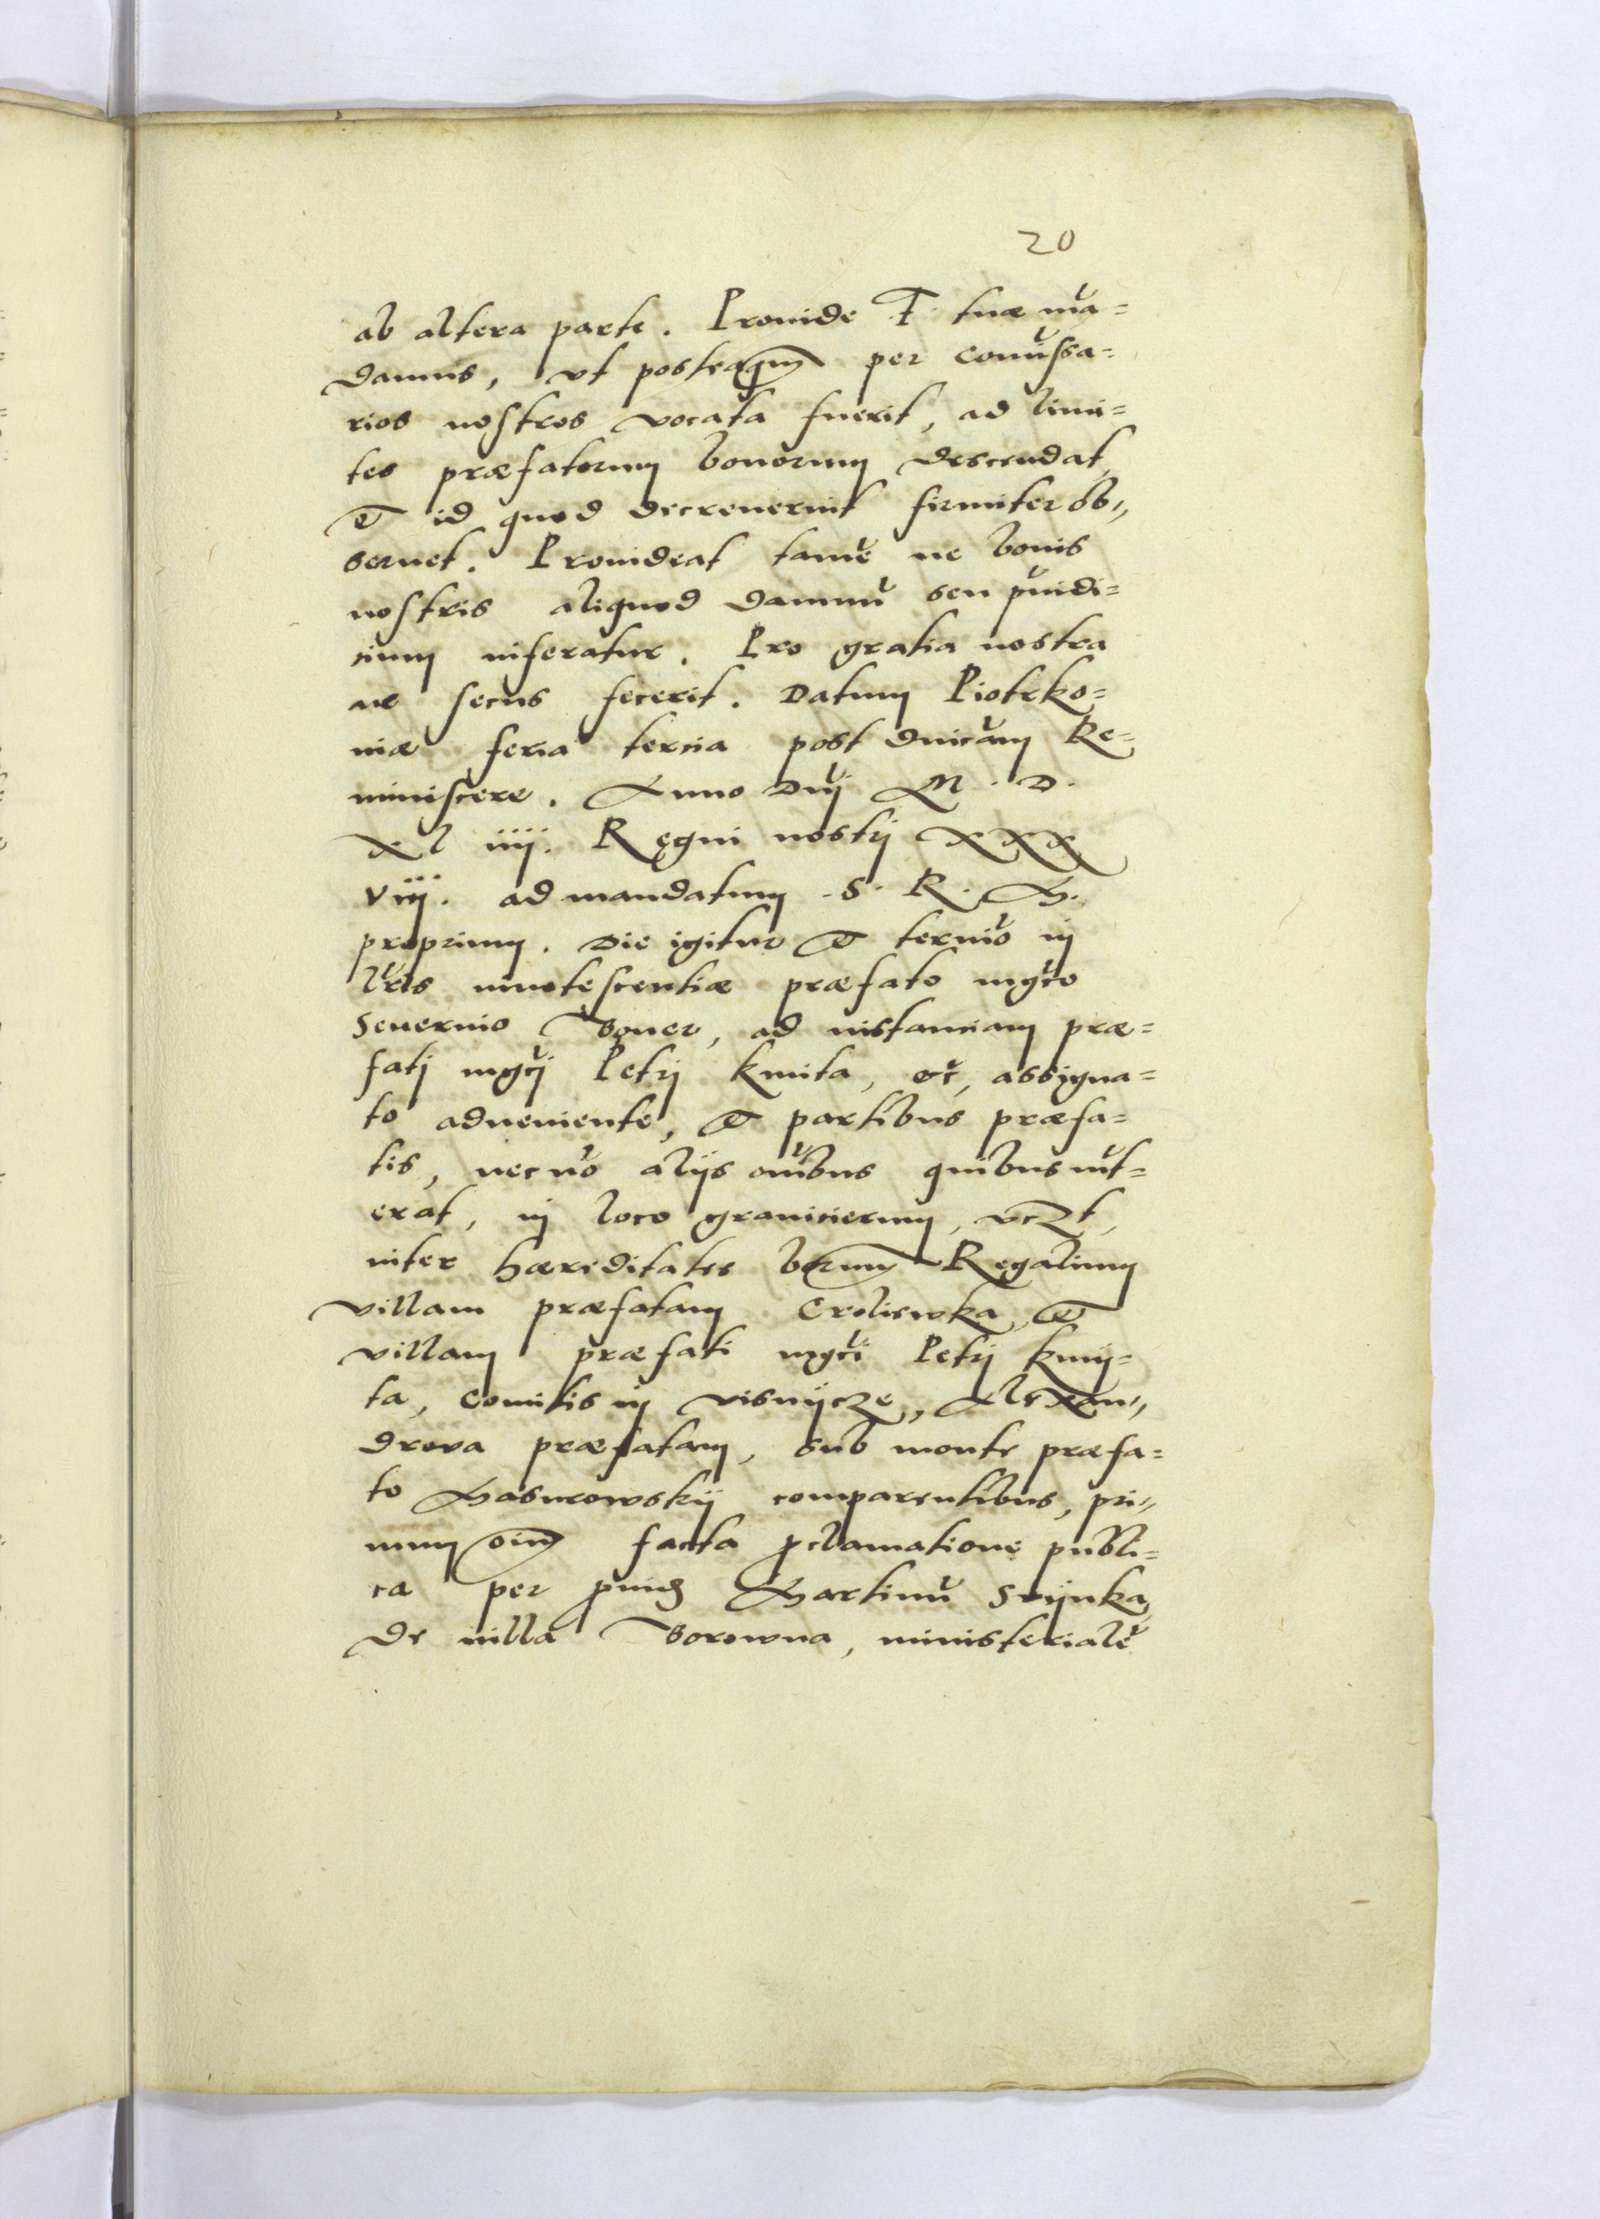 20
ab altera parte. Prouide F. tuæ mā=
damus, vt posteaqm̄ per com̄issa=
rios nostros vocata fuerit, ad limi=
tes præfatorum bonorum descendat
et id quod decreuerint firmiter ob=
seruet. Prouideat tamē ne bonis
nostris aliquod damnū seu pu̅idi=
cium inferatur. Pro gratia nostra
ne secus fecerit. Datum Piotrko=
uiæ feria tercia post Dnicam Re=
miniscere. Anno Dnj M. D.
xl iiij. Regni nostrj XXX
viij. ad mandatum .S. R. M.
proprium. Die igitur et termīo in
lrīs innotescentiæ præfato mgco
Seuerino Boner, ad instanciam præ=
fatj mgcj Petrj Kmita, etc, assigna=
to adueniente, et partibus præfa=
tis, necnō alijs om̄ibus quibus int=
erat, in loco granicierum, vczt,
inter hæreditates bo̅rum Regalium
villam præfatam Croliewka et
villam præfati mgci Petrj Kmij=
ta, Comitis in Visnijcze, Alexan=
drova præfatam, sub monte præfa=
to Masurowskij comparentibus, pri=
mum oim̄ facta proclamatione publi=
ca per prouid Martinū Srijnka
de uilla Borowna, ministerialē